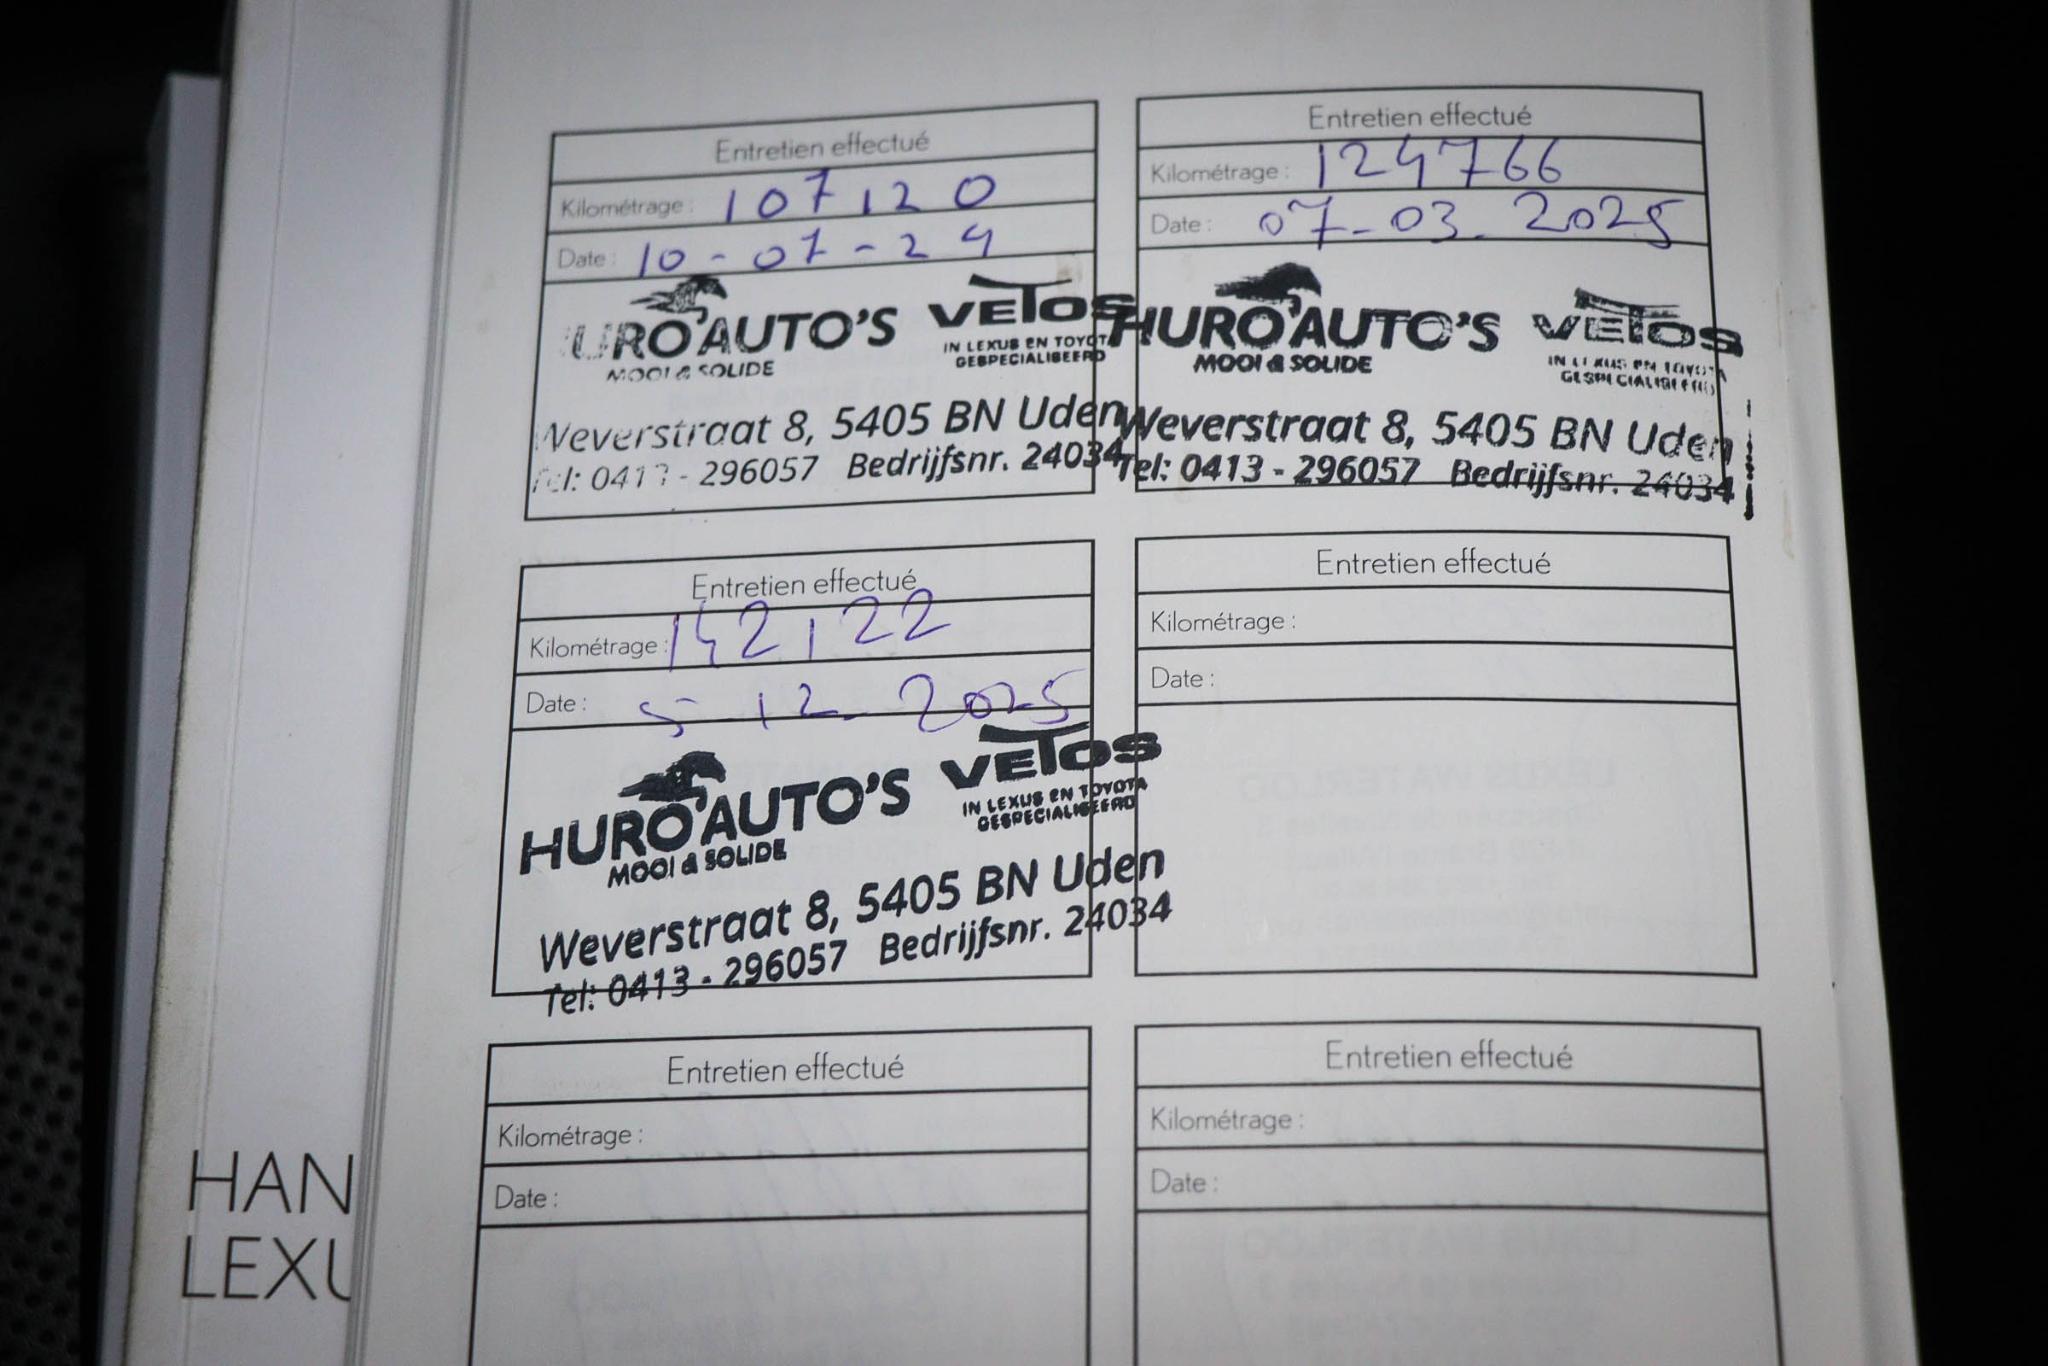 Entretien effectué
Kilométrage : 107120
Date : 10-07-24
URO AUTO'S
MOOI & SOLIDE
VETOS
IN LEXUS EN TOYOT
GESPECIALISEERD
Weverstraat 8, 5405 BN Uden
Tel: 0413 - 296057 Bedrijfsnr. 24034
Entretien effectué
Kilométrage : 124766
Date : 07-03-2025
HURO AUTO'S
MOOI & SOLIDE
VETOS
IN LEXUS EN TOYOTA
GESPECIALISEERD
Weverstraat 8, 5405 BN Uden
Tel: 0413 - 296057 Bedrijfsnr. 24034
Entretien effectué
Kilométrage : 142122
Date : 5-12-2025
HURO AUTO'S
MOOI & SOLIDE
VETOS
IN LEXUS EN TOYOTA
GESPECIALISEERD
Weverstraat 8, 5405 BN Uden
Tel: 0413 - 296057 Bedrijfsnr. 24034
Entretien effectué
Kilométrage :
Date :
Entretien effectué
Kilométrage :
Date :
Entretien effectué
Kilométrage :
Date :
HAN
LEXU